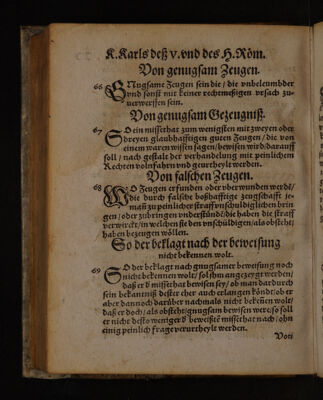 K. Karls deß v. vnd des H. Röm.
Von genugsam Zeugen.
66 GNugsame Zeugen sein die / die vnbeleumbder
vnd sonst mit keiner rechtmeßigen vrsach zu-
uerwerffen sein.
Von genugsam Gezeugniß.
67 SO ein missethat zum wenigsten mit zweyen oder
dreyen glaubhafftigen guten Zeugen / die von
einem waren wissen sagen / bewisen wird / darauff
soll / nach gestalt der verhandelung mit peinlichem
Rechten volnfahrn vnd geurtheylt werden.
Von falschen Zeugen.
68 WO Zeugen erfunden oder vberwunden werdē /
die durch falsche boßhafftige zeugschafft je-
mañ zu peinlicher straff vnschuldiglichen brin
gen / oder zubringen vnderstündē / die haben die straff
verwirckt / in welchen sie den vnschüldigen / als obsteht /
haben bezeugen wöllen.
So der beklagt nach der beweisung
nicht bekennen wolt.
69 SO der beklagt nach gnugsamer beweisung noch
nicht bekennen wolt / sol jhm angezeygt werden /
daß er ð missethat bewisen sey / ob man dardurch
sein bekantniß dester eher auch erlangen köndt / ob er
aber dannoch darüber nachmals nicht bekeñen wolt /
daß er doch / als obsteht / gnugsam bewisen were / so soll
er nicht desto weniger ð beweißtē missethat nach / ohn
einig peinlich frage verurtheylt werden.
Von